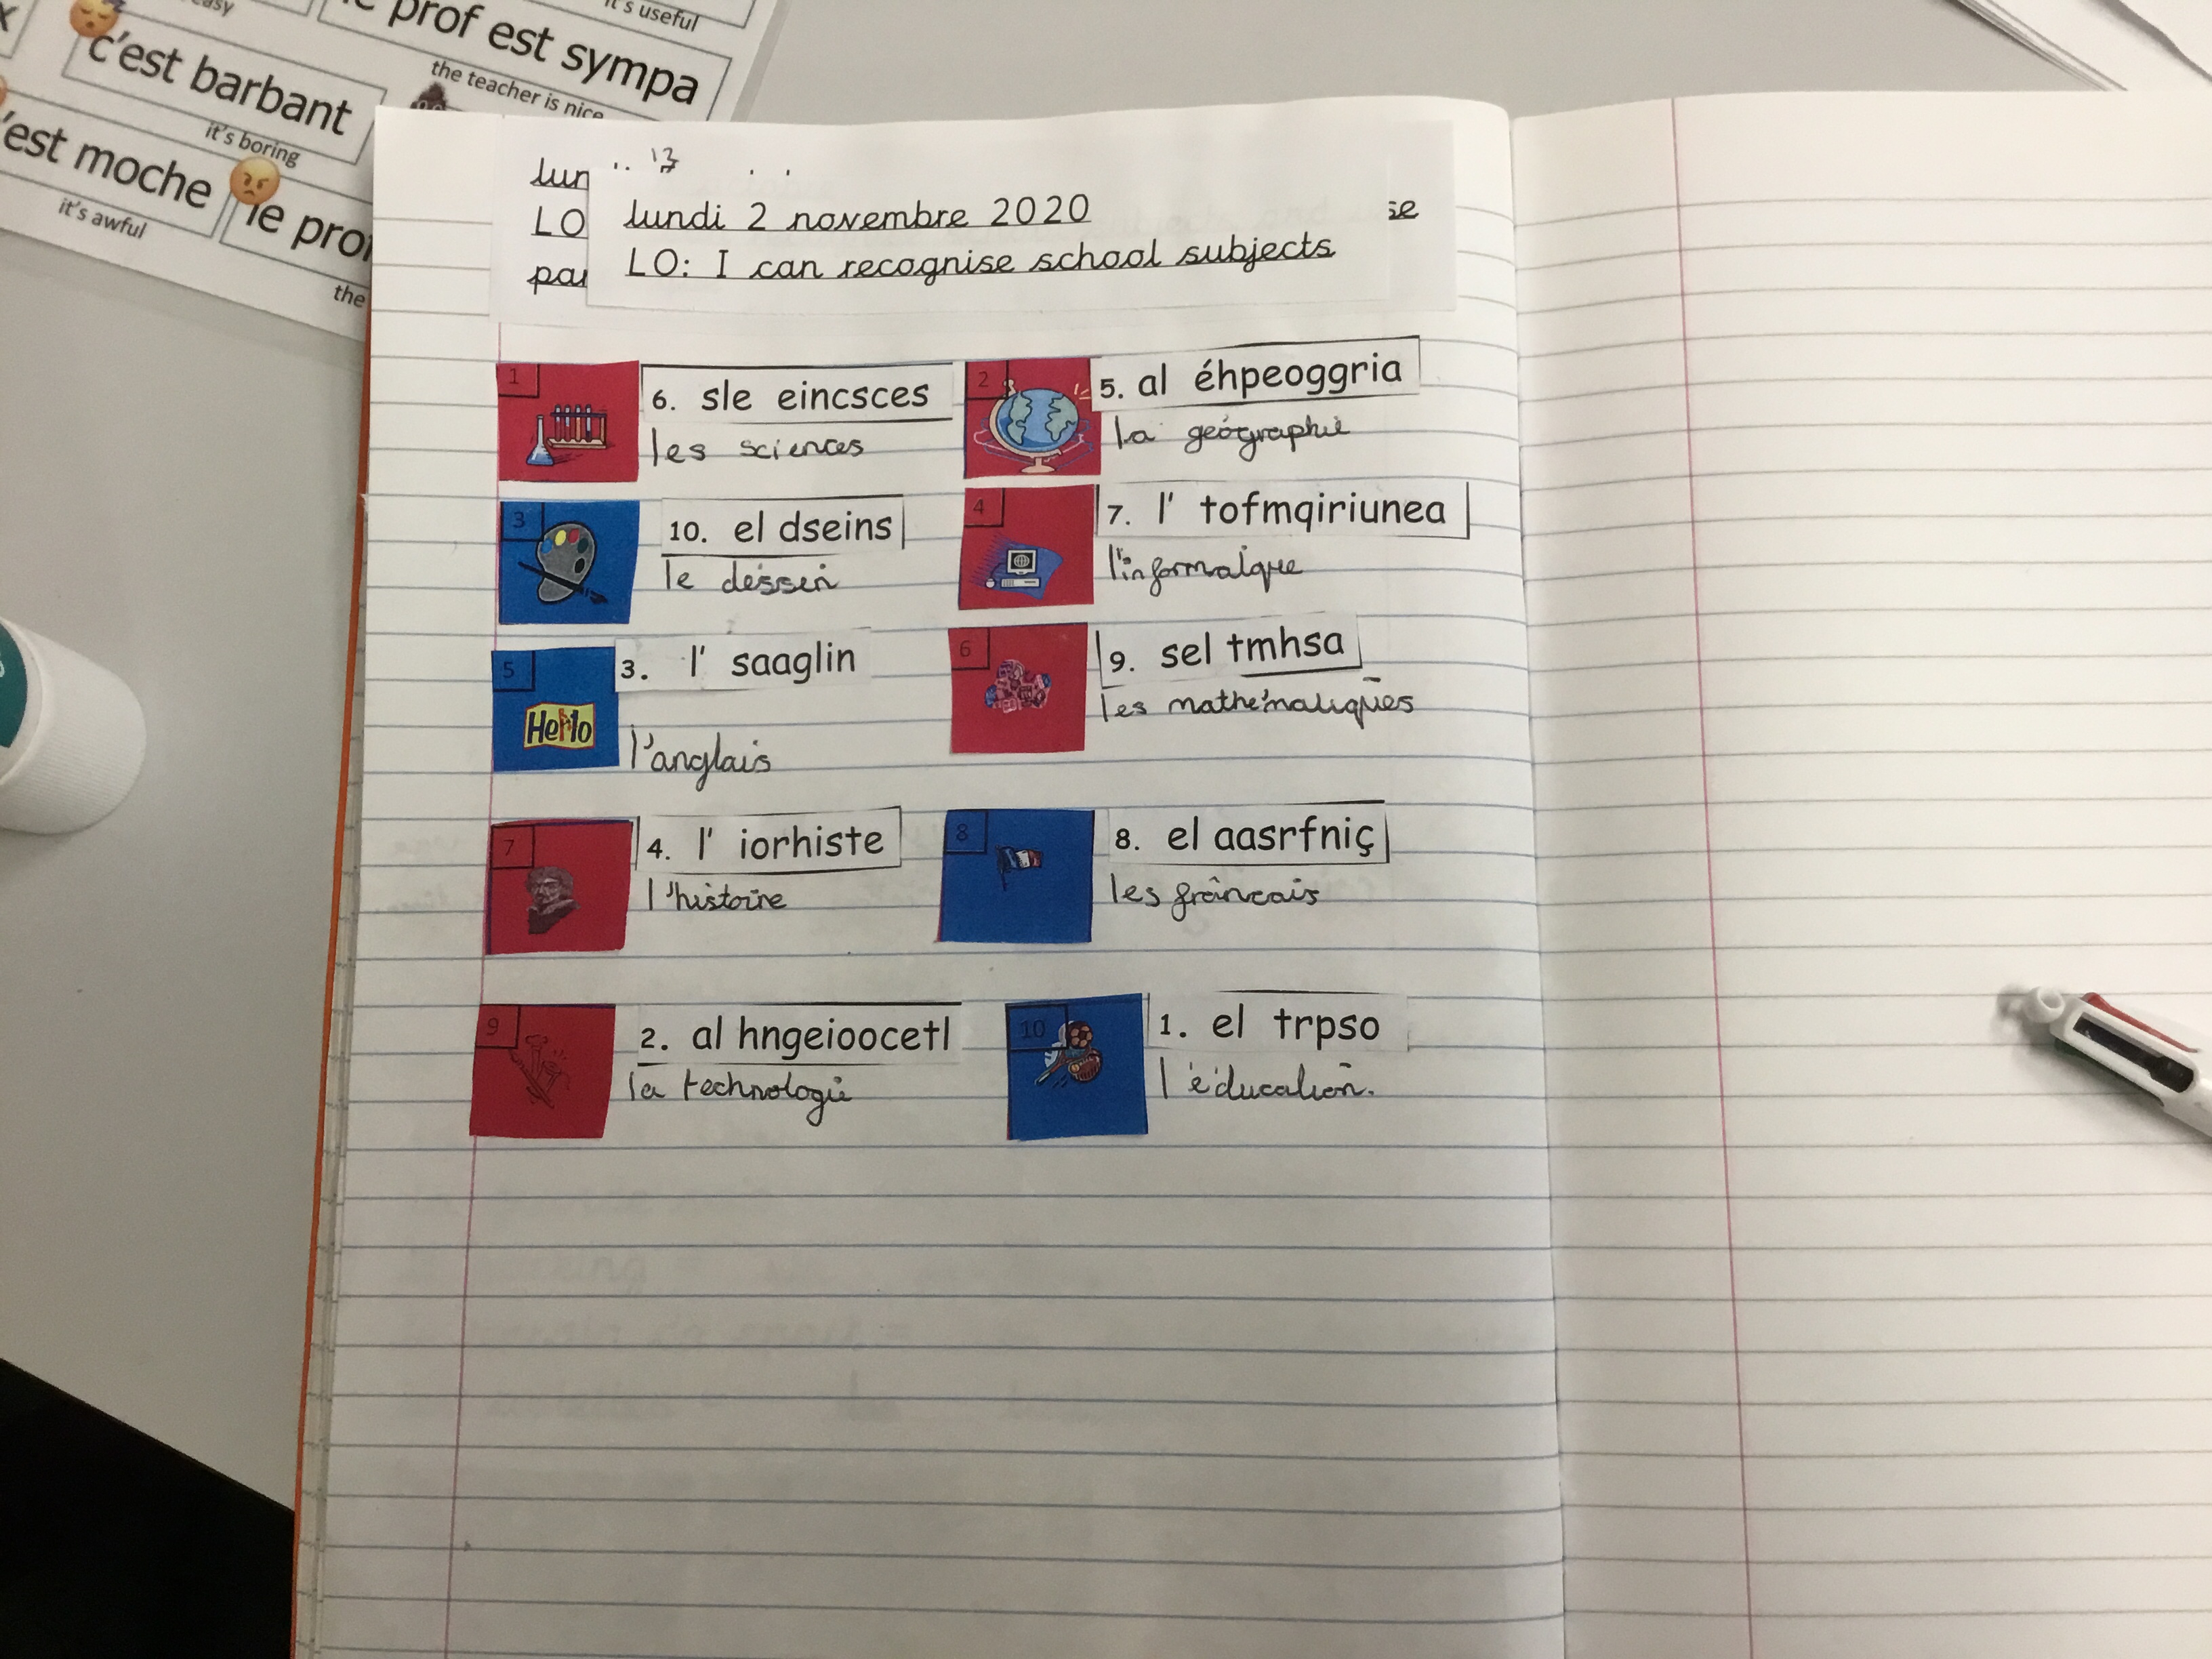 easy
it's useful
le prof est sympa
the teacher is nice
c'est barbant
it's boring
c'est moche
it's awful
le prof
the
lun
lundi 2 novembre 2020
LO
se
LO: I can recognise school subjects
par
1
6. sle eincsces
les sciences
2
5. al éhpeoggria
la géographie
3
10. el dseins
le dessin
4
7. l' tofmqiriunea
l'informatque
5
3. l' saaglin
Hello
l'anglais
6
9. sel tmhsa
les mathématiques
7
4. l' iorhiste
l'histoire
8
8. el aasrfniç
les francais
9
2. al hngeioocetl
la technologie
10
1. el trpso
l'éducation.